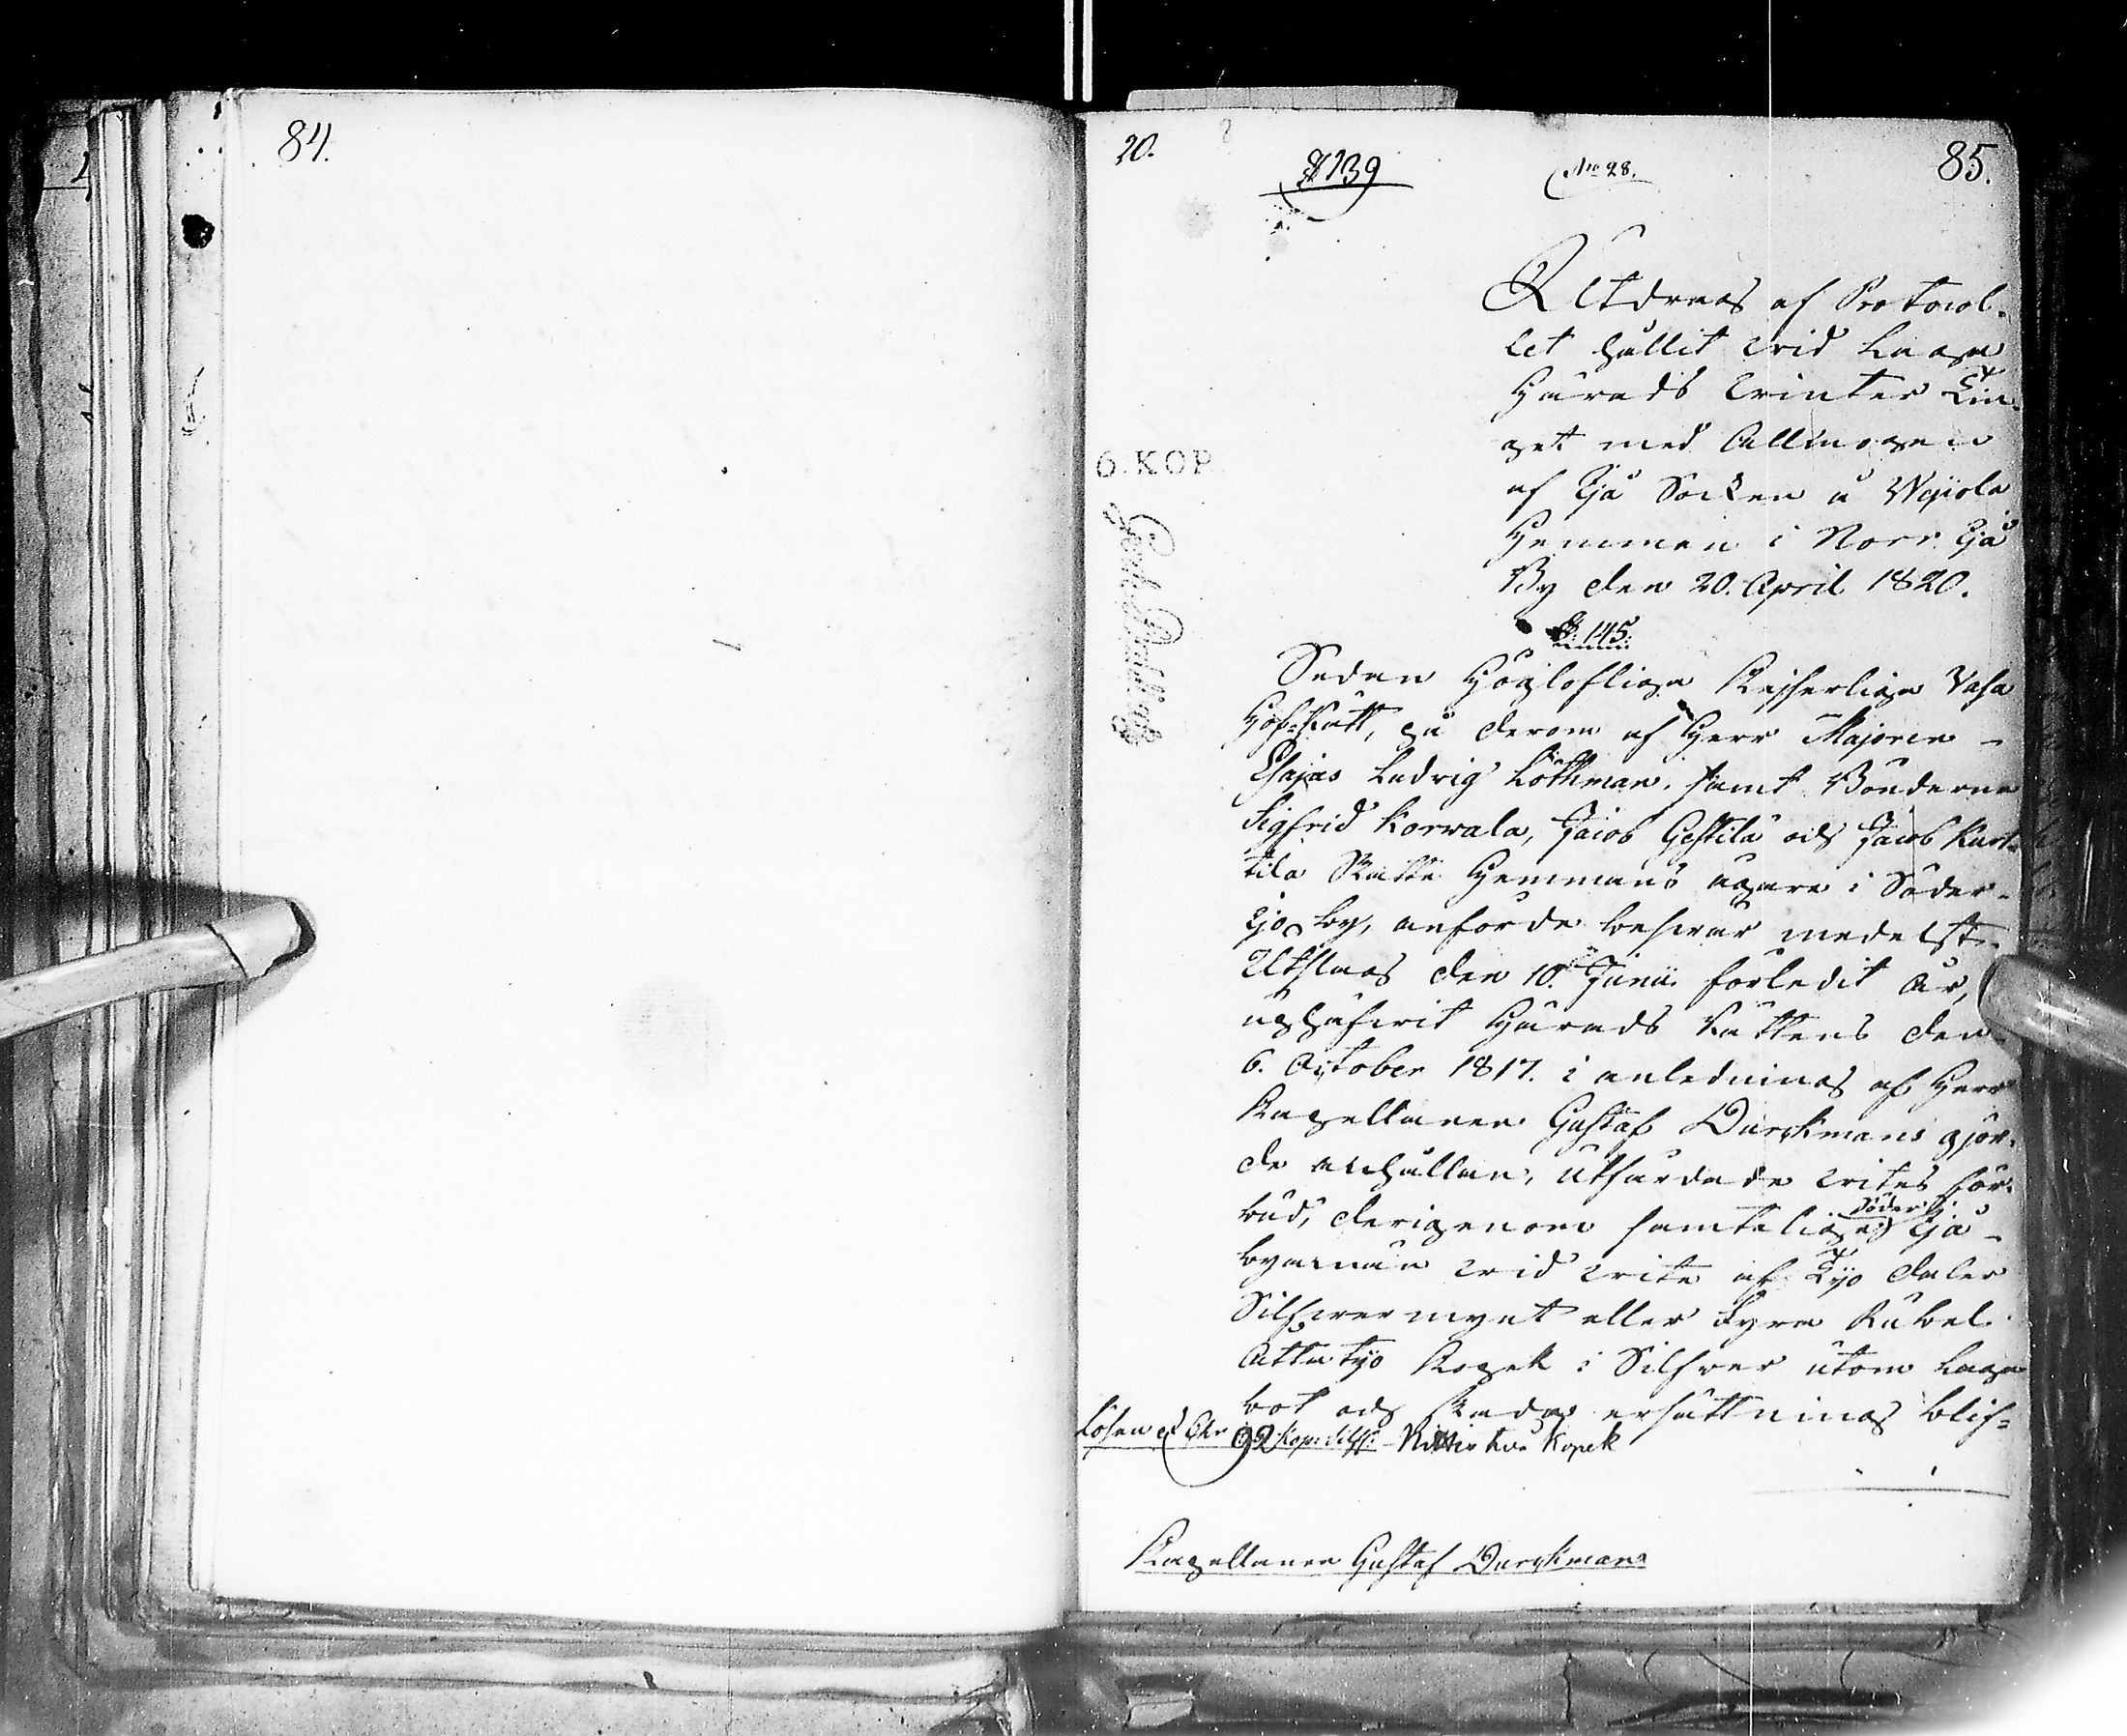 84.
20.
§ 139
No 28.
85.
Utdrag af Protocol-
let hållit wid Laga
Härads Winter Tin-
get med Allmogen
af Ijå Socken å Wejjola
Hemman i Norr Ijå
By den 20. April 1820.
§. 145.
6. KOP
Sedan Höglofliga Kejserliga Vasa
Hof-Rätt, på derom af Herr Majoren
Esajas Ludvig Löthman, samt Bönderne
Sigfrid Korwala, Jacob Gestilä och Jacob Kurt-
tila Skatte Hemmans ägare i Söder-
Ijo by, anförde beswär medelst
Utslag den 10. Junii förledit år,
upphäfwit Härads Rättens den
6. October 1817. i anledning af Herr
Kapellanen Gustaf Durchmans gjor-
de anhållan, utfärdade wites för-
bud, derigenom samtelige Söder Ijå
byamän wid wite af Tijo daler
Silfwermynt eller Fyra Rubel
Åttatijo Kopek i Silfwer utom laga
bot och skade ersättning blif-
Lösen et Cha 92 Kop: Silf: Nittie två Kopek
Kapellanen Gustaf Durchman